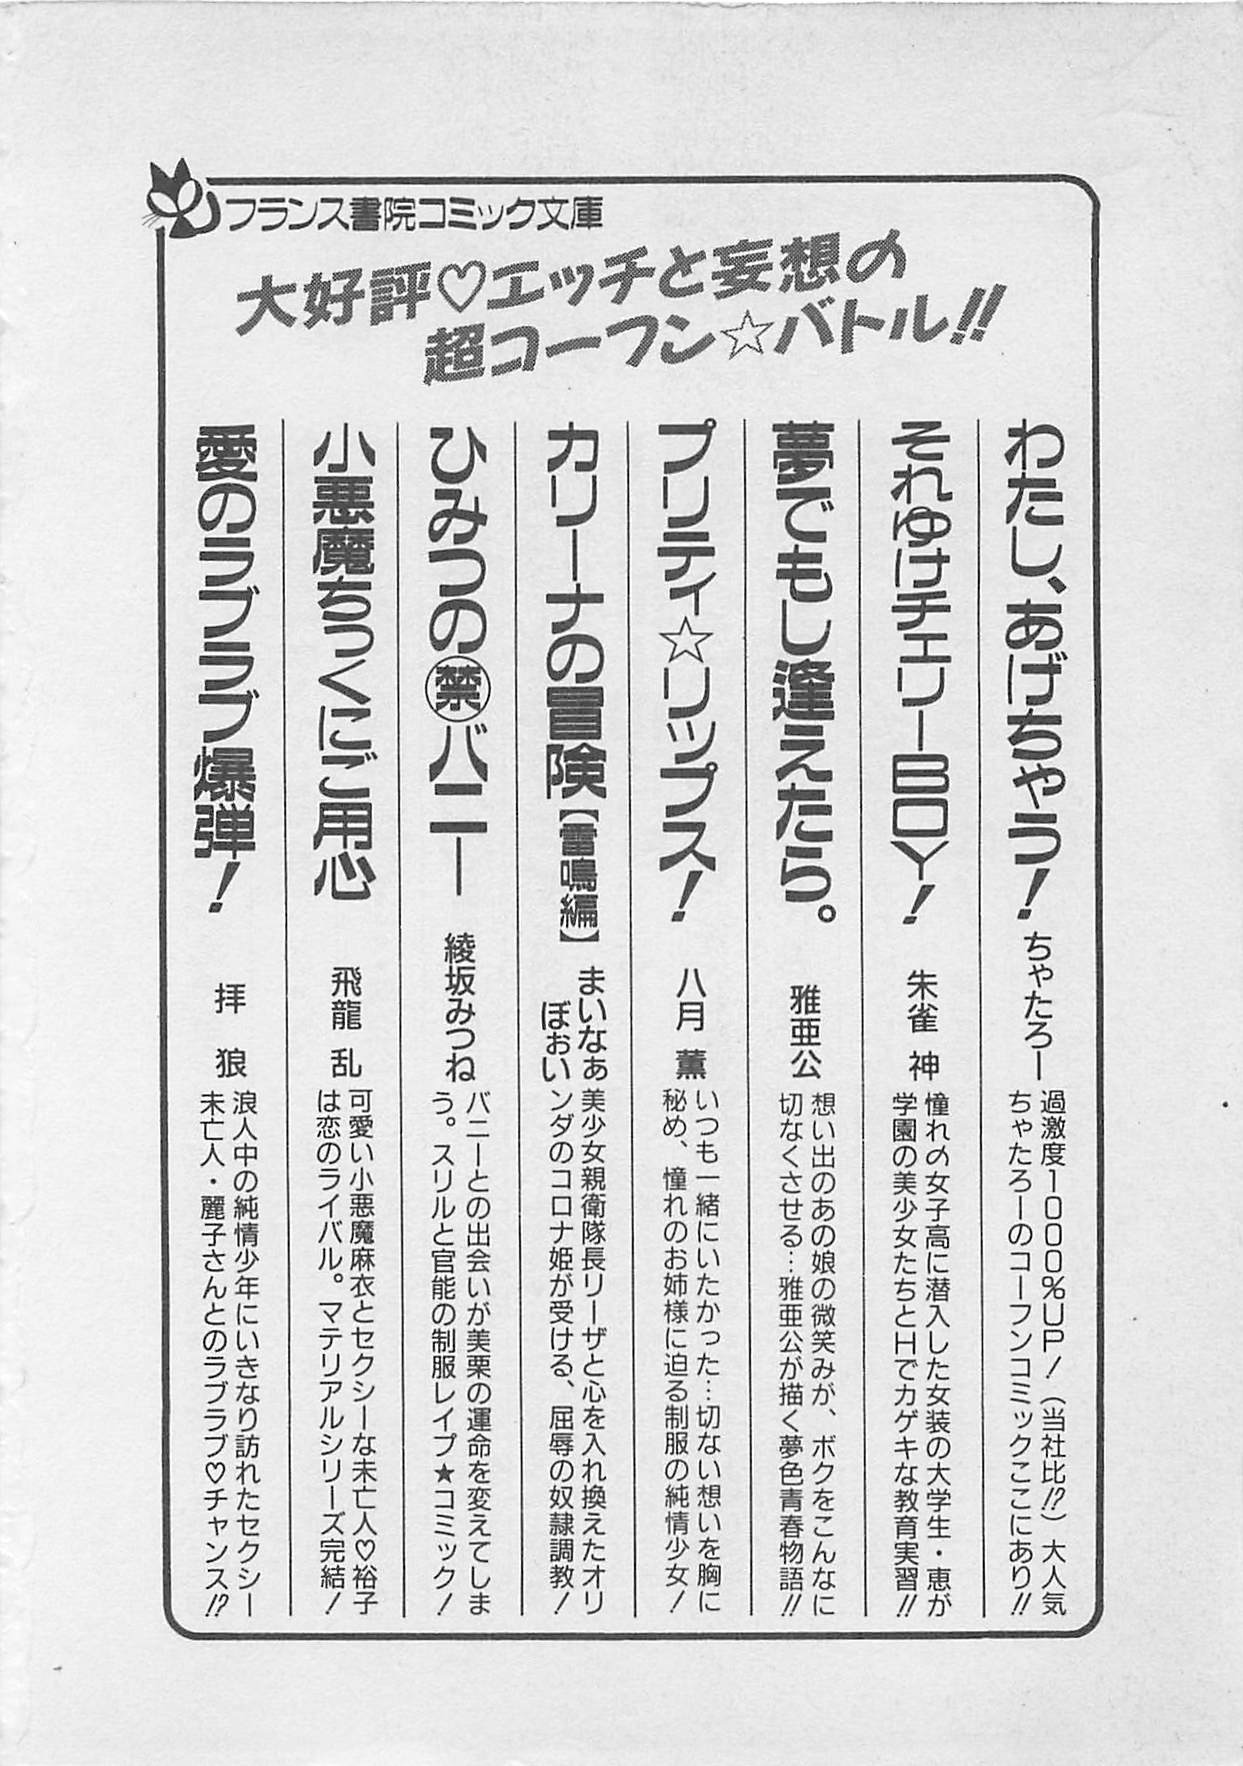 フランス書院コミック文庫
大好評♡エッチと妄想の
超コーフン☆バトル!!
わたし、あげちゃう！
ちゃたろー
過激度1000%UP！（当社比!?）大人気
ちゃたろーのコーフンコミックここにあり!!
それゆけチェリーBOY！
朱雀 神
憧れの女子高に潜入した女装の大学生・恵が
学園の美少女たちとHでカゲキな教育実習!!
夢でもし逢えたら。
雅亜公
想い出のあの娘の微笑みが、ボクをこんなに
切なくさせる…雅亜公が描く夢色青春物語!!
プリティ☆リップス！
八月 薫
いつも一緒にいたかった…切ない想いを胸に
秘め、憧れのお姉様に迫る制服の純情少女！
カリーナの冒険【雷鳴編】
まいなぁ
ぼぉい
美少女親衛隊長リーザと心を入れ換えたオリ
ンダのコロナ姫が受ける、屈辱の奴隷調教！
ひみつの㊙バニー
綾坂みつね
バニーとの出会いが美栗の運命を変えてしま
う。スリルと官能の制服レイプ★コミック！
小悪魔ちっくにご用心
飛龍 乱
可愛い小悪魔麻衣とセクシーな未亡人♡裕子
は恋のライバル。マテリアルシリーズ完結！
愛のラブラブ爆弾！
拝 狼
浪人中の純情少年にいきなり訪れたセクシー
未亡人・麗子さんとのラブラブ♡チャンス!?